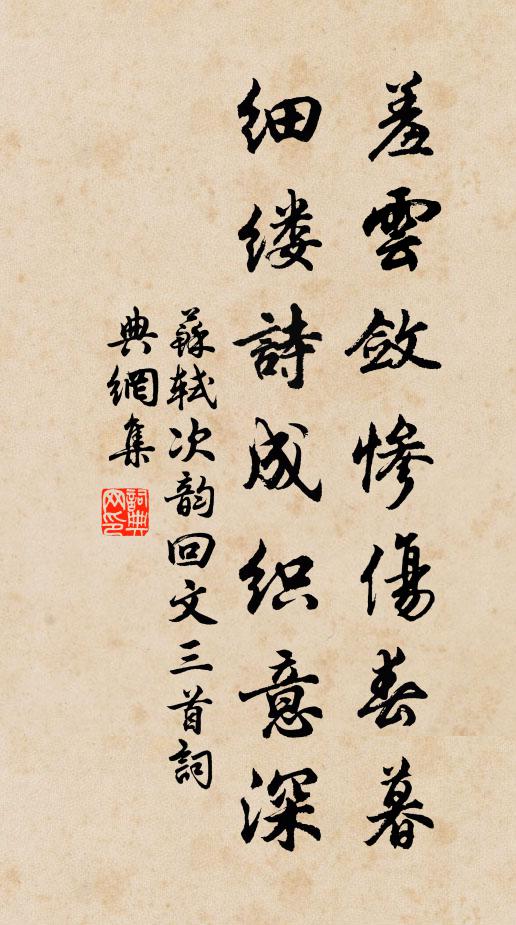 羞雲斂慘傷春暮
细缕詩成织意深
蘇轼次韵回文三首詞
典網集
詞典网印